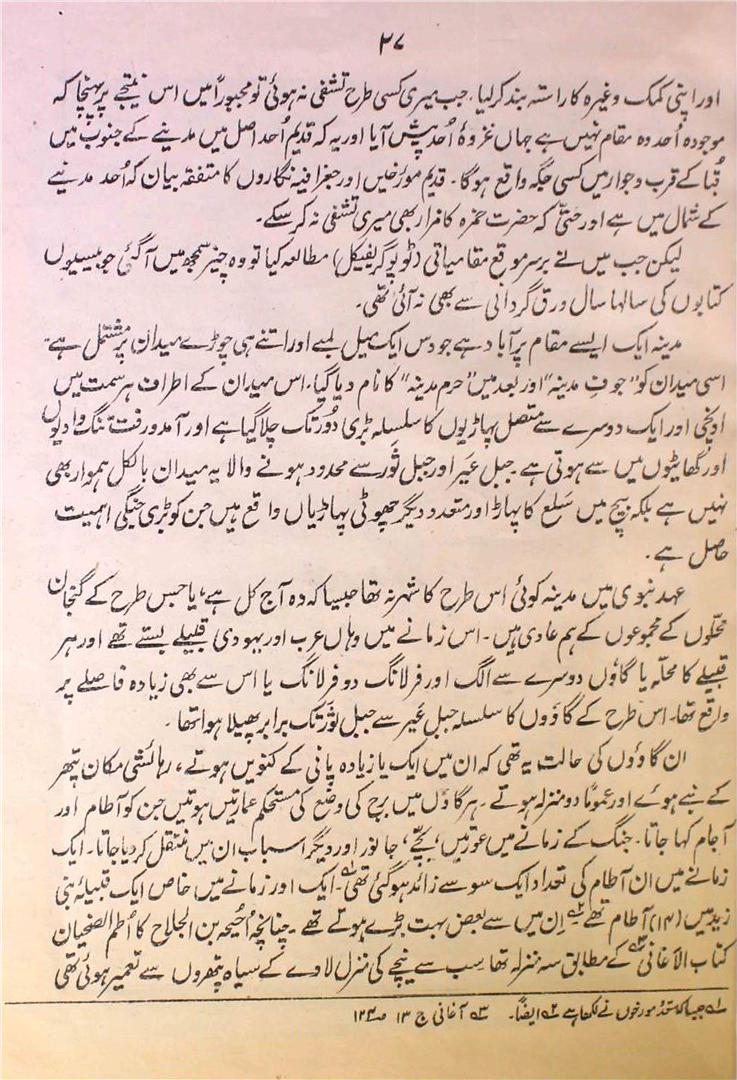 ۲۷
اور اپنی کمک وغیرہ کا راستہ بند کر لیا۔ جب میری کسی طرح تشفی نہ ہوئی تو مجبوراً میں اس نتیجے پر پہنچا کہ
موجودہ اُحد وہ مقام نہیں ہے جہاں غزوۂ اُحد پیش آیا اور یہ کہ قدیم اُحد اصل میں مدینے کے جنوب میں
قُبا کے قرب و جوار میں کسی جگہ واقع ہوگا۔ قدیم مورخین اور جغرافیہ نگاروں کا متفقہ بیان کہ اُحد مدینے
کے شمال میں ہے اور حتیٰ کہ حضرت حمزہ کا مزار بھی میری تشفی نہ کر سکے۔
لیکن جب میں نے بر سر موقع مقامیاتی (ٹوپوگریفیکل) مطالعہ کیا تو وہ چیز سمجھ میں آ گئی جو بیسیوں
کتابوں کی سالہا سال ورق گردانی سے بھی نہ آئی تھی۔
مدینہ ایک ایسے مقام پر آباد ہے جو دس ایک میل لمبے اور اتنے ہی چوڑے میدان پر مشتمل ہے۔
اسی میدان کو "جوفِ مدینہ" اور بعد میں "حرم مدینہ" کا نام دیا گیا۔ اس میدان کے اطراف ہر سمت میں
اونچی اور ایک دوسرے سے متصل پہاڑیوں کا سلسلہ بڑی دُور تک چلا گیا ہے اور آمد و رفت تنگ وادیوں
اور گھاٹیوں میں سے ہوتی ہے۔ جبل عَیر اور جبل ثَور سے محدود ہونے والا یہ میدان بالکل ہموار بھی
نہیں ہے بلکہ بیچ میں سَلع کا پہاڑ اور متعدد دیگر چھوٹی پہاڑیاں واقع ہیں جن کو بڑی جنگی اہمیت
حاصل ہے۔
عہد نبوی میں مدینہ کوئی اس طرح کا شہر نہ تھا جیسا کہ وہ آج کل ہے، یا جس طرح کے گنجان
محلّوں کے مجموعوں کے ہم عادی ہیں۔ اس زمانے میں وہاں عرب اور یہودی قبیلے بستے تھے اور ہر
قبیلے کا محلّہ یا گاؤں دوسرے سے الگ اور فرلانگ دو فرلانگ یا اس سے بھی زیادہ فاصلے پر
واقع تھا۔ اس طرح کے گاؤوں کا سلسلہ جبل عَیر سے جبل ثَور تک برابر پھیلا ہوا تھا۔
ان گاؤوں کی حالت یہ تھی کہ ان میں ایک یا زیادہ پانی کے کنویں ہوتے، رہائشی مکان پتھر
کے بنے ہوئے اور عموماً دو منزلہ ہوتے۔ ہر گاؤں میں برج کی وضع کی مستحکم عمارتیں ہوتیں جن کو آطام اور
آجام کہا جاتا۔ جنگ کے زمانے میں عورتیں، بچّے، جانور اور دیگر اسباب ان میں منتقل کر دیا جاتا۔ ایک
زمانے میں ان آطام کی تعداد ایک سو سے زائد ہو گئی تھی۱؎۔ ایک اور زمانے میں خاص ایک قبیلہ بنی
زید میں (۱۴) آطام تھے۲؎۔ ان میں سے بعض بہت بڑے ہوتے تھے۔ چنانچہ اُحیحہ بن الجلاح کا اُطم الضحیان
کتاب الاَغانی۳؎ کے مطابق سہ منزلہ تھا سب سے نیچے کی منزل لاوے کے سیاہ پتھروں سے تعمیر ہوئی تھی
۱؎ جیسا کہ متعدد مورخوں نے لکھا ہے ۲؎ ایضاً۔ ۳؎ آغانی ج ۱۳ صـ۱۲۴